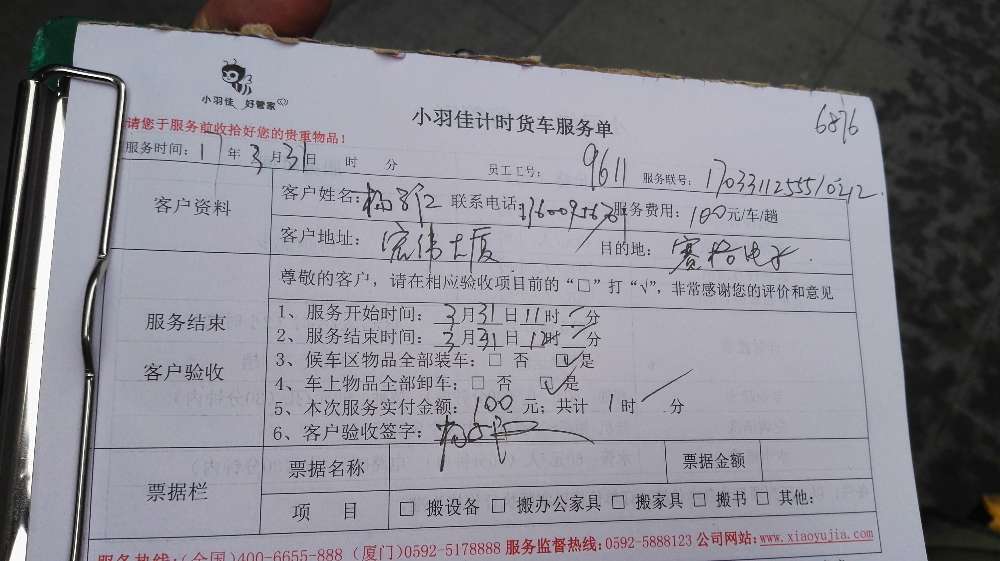 小羽佳 好管家
小羽佳计时货车服务单
6876
请您于服务前收拾好您的贵重物品！
服务时间：17年3月31日 时 分 员工工号：9611 服务联号：
客户资料
客户姓名：杨 联系电话： 服务费用：100元/车/趟
客户地址：宏伟大厦 目的地：赛格电子
服务结束
客户验收
尊敬的客户，请在相应验收项目前的“□”打“√”，非常感谢您的评价和意见
1、服务开始时间：3月31日11时 分
2、服务结束时间：3月31日12时 分
3、候车区物品全部装车：□ 否 ☑ 是
4、车上物品全部卸车：□ 否 ☑ 是
5、本次服务实付金额：100元；共计 1时 分
6、客户验收签字：
票据栏
票据名称 票据金额
项 目 □ 搬设备 □ 搬办公家具 □ 搬家具 □ 搬书 □ 其他：
服务热线：（全国）400-6655-888（厦门）0592-5178888 服务监督热线：0592-5888123 公司网站：www.xiaoyujia.com